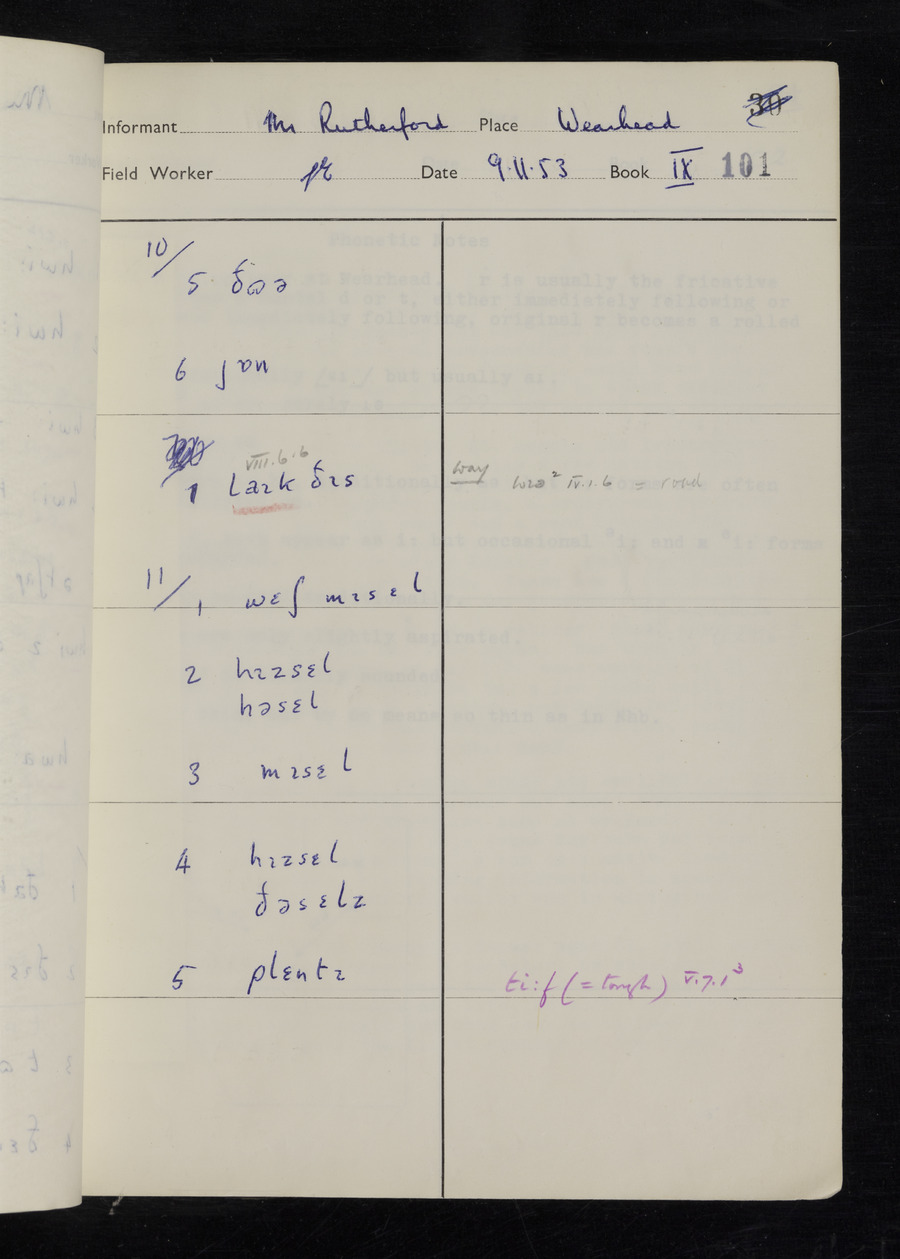 Informant Mr Rutherford Place Wearhead
Field Worker Date 9.11.53 Book IX 101
10/
5 ðɷə
6 ʃɒn
VIII.6.6
7 laɪk ðɪs
way wɪə² IV.1.6 = road
11/
1 wɛʃ mɪsɛl
2 hɪzsɛl
həsɛl
3 mɪsɛl
4 hɪzsɛl
ðəsɛlz
5 plɛntɪ
ti:f (= tough) V.7.1³